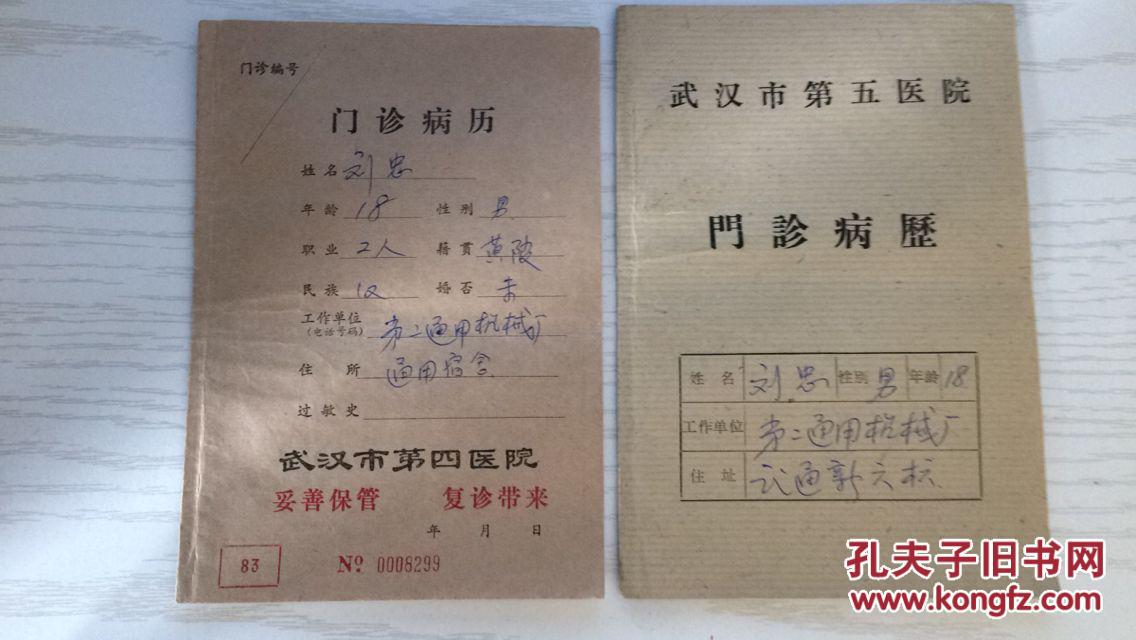 门诊编号
门诊病历
姓名 刘忠
年龄 18 性别 男
职业 工人 籍贯 黄陂
民族 汉 婚否 未
工作单位 第二通用机械厂
(电话号码)
住所 通用宿舍
过敏史
武汉市第四医院
妥善保管 复诊带来
年 月 日
83 № 0008299
武汉市第五医院
門診病歷
姓名 刘忠 性别 男 年龄 18
工作单位 第二通用机械厂
住址 武通新六栋
孔夫子旧书网
www.kongfz.com